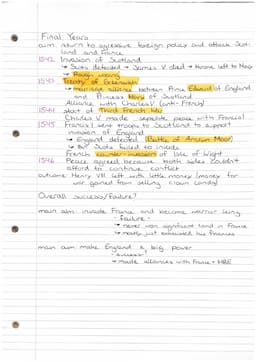 Final Years
aim return to aggressive foreign policy and attack Scot-
land and France
1542 Invasion of Scotland
→ Scots defeated → James V died → throne left to Mary
→ Rough wooing
1543 Treaty of Greenwich
→ marriage alliance between Prince Edward of England
and Princess Mary of Scotland
Alliance with Charles V (anti-French)
1544 start of Third French War
Charles V made separate peace with Francis I
1545 Francis I sent troops to Scotland to support
invasion of England
→ England defeated (Battle of Ancrum Moor)
→ But Scots failed to invade
French counter-invasion of Isle of Wight
1546 Peace agreed because both sides couldn't
afford to continue conflict
outcome Henry VIII left with little money (money for
war gained from selling crown lands)
Overall success/failure?
main aim invade France and become warrior king
- failure -
→ never won significant land in France
→ mostly just exhausted his finances
main aim make England a big power
- success -
→ made alliances with France + HRE